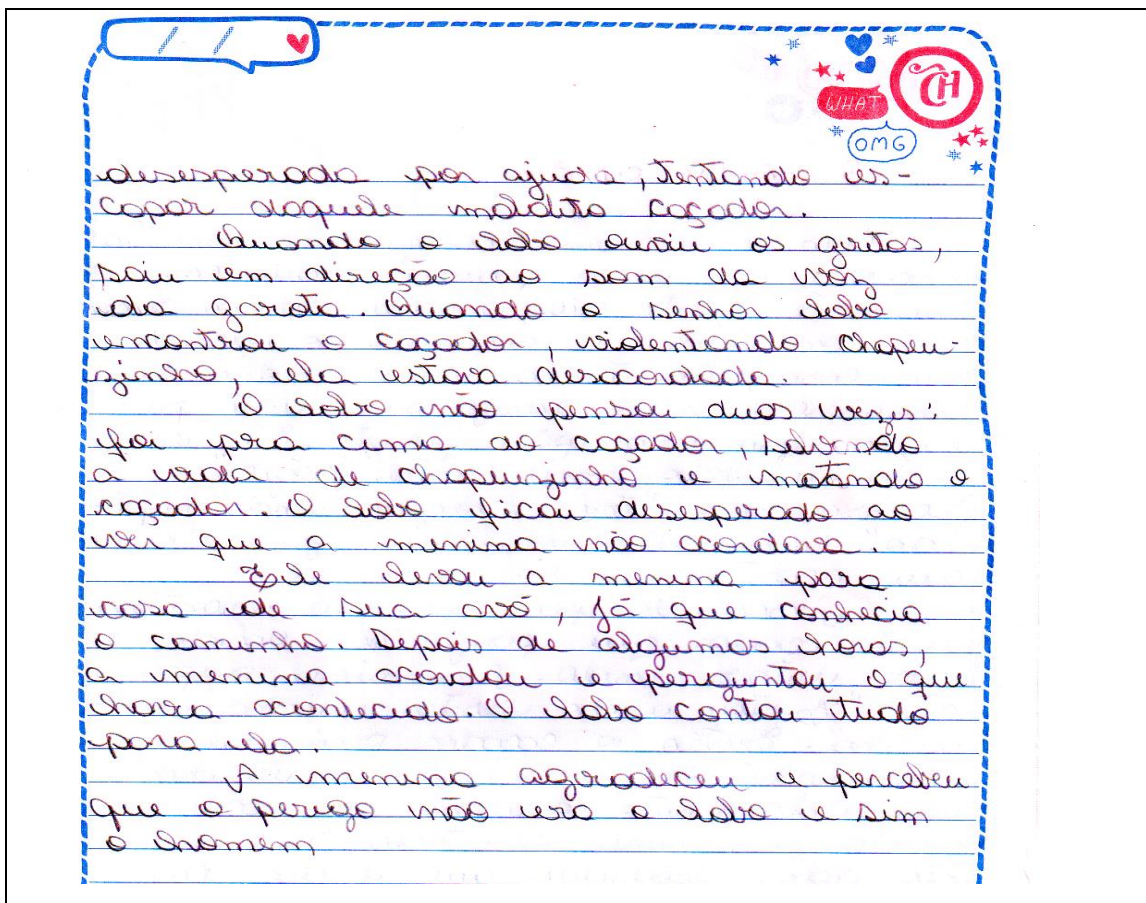 / /
CH
WHAT
OMG
desesperada por ajuda, tentando es-
capar daquele maldito caçador.
Quando o lobo ouviu os gritos,
saiu em direção ao som da voz
da garota. Quando o senhor lobo
encontrou o caçador, violentando chapeu-
zinho, ela estava desacordada.
O lobo não pensou duas vezes:
foi pra cima do caçador, salvando
a vida de chapeuzinho e matando o
caçador. O lobo ficou desesperado ao
ver que a menina não acordava.
Ele levou a menina para
casa de sua avó, já que conhecia
o caminho. Depois de algumas horas,
a menina acordou e perguntou o que
havia acontecido. O lobo contou tudo
para ela.
A menina agradeceu e percebeu
que o perigo não era o lobo e sim
o homem